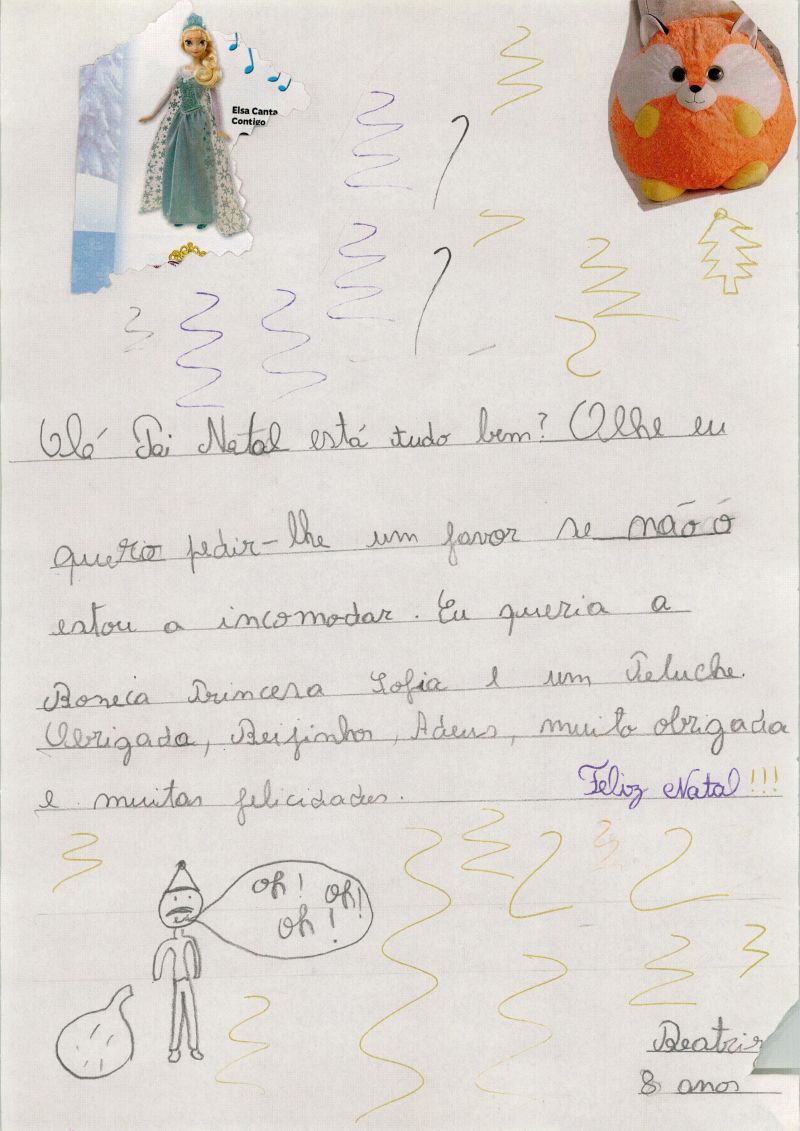 Elsa Canta
Contigo
Olá Pai Natal está tudo bem? Olhe eu
querio pedir-lhe um favor se não ó
estou a incomodar. Eu queria a
Boneca Princesa Sofia e um Peluche.
Obrigada, Beijinhos, Adeus, muito obrigada
e muitas felicidades.
Feliz Natal!!!
oh! oh!
oh!
Beatriz
8 anos